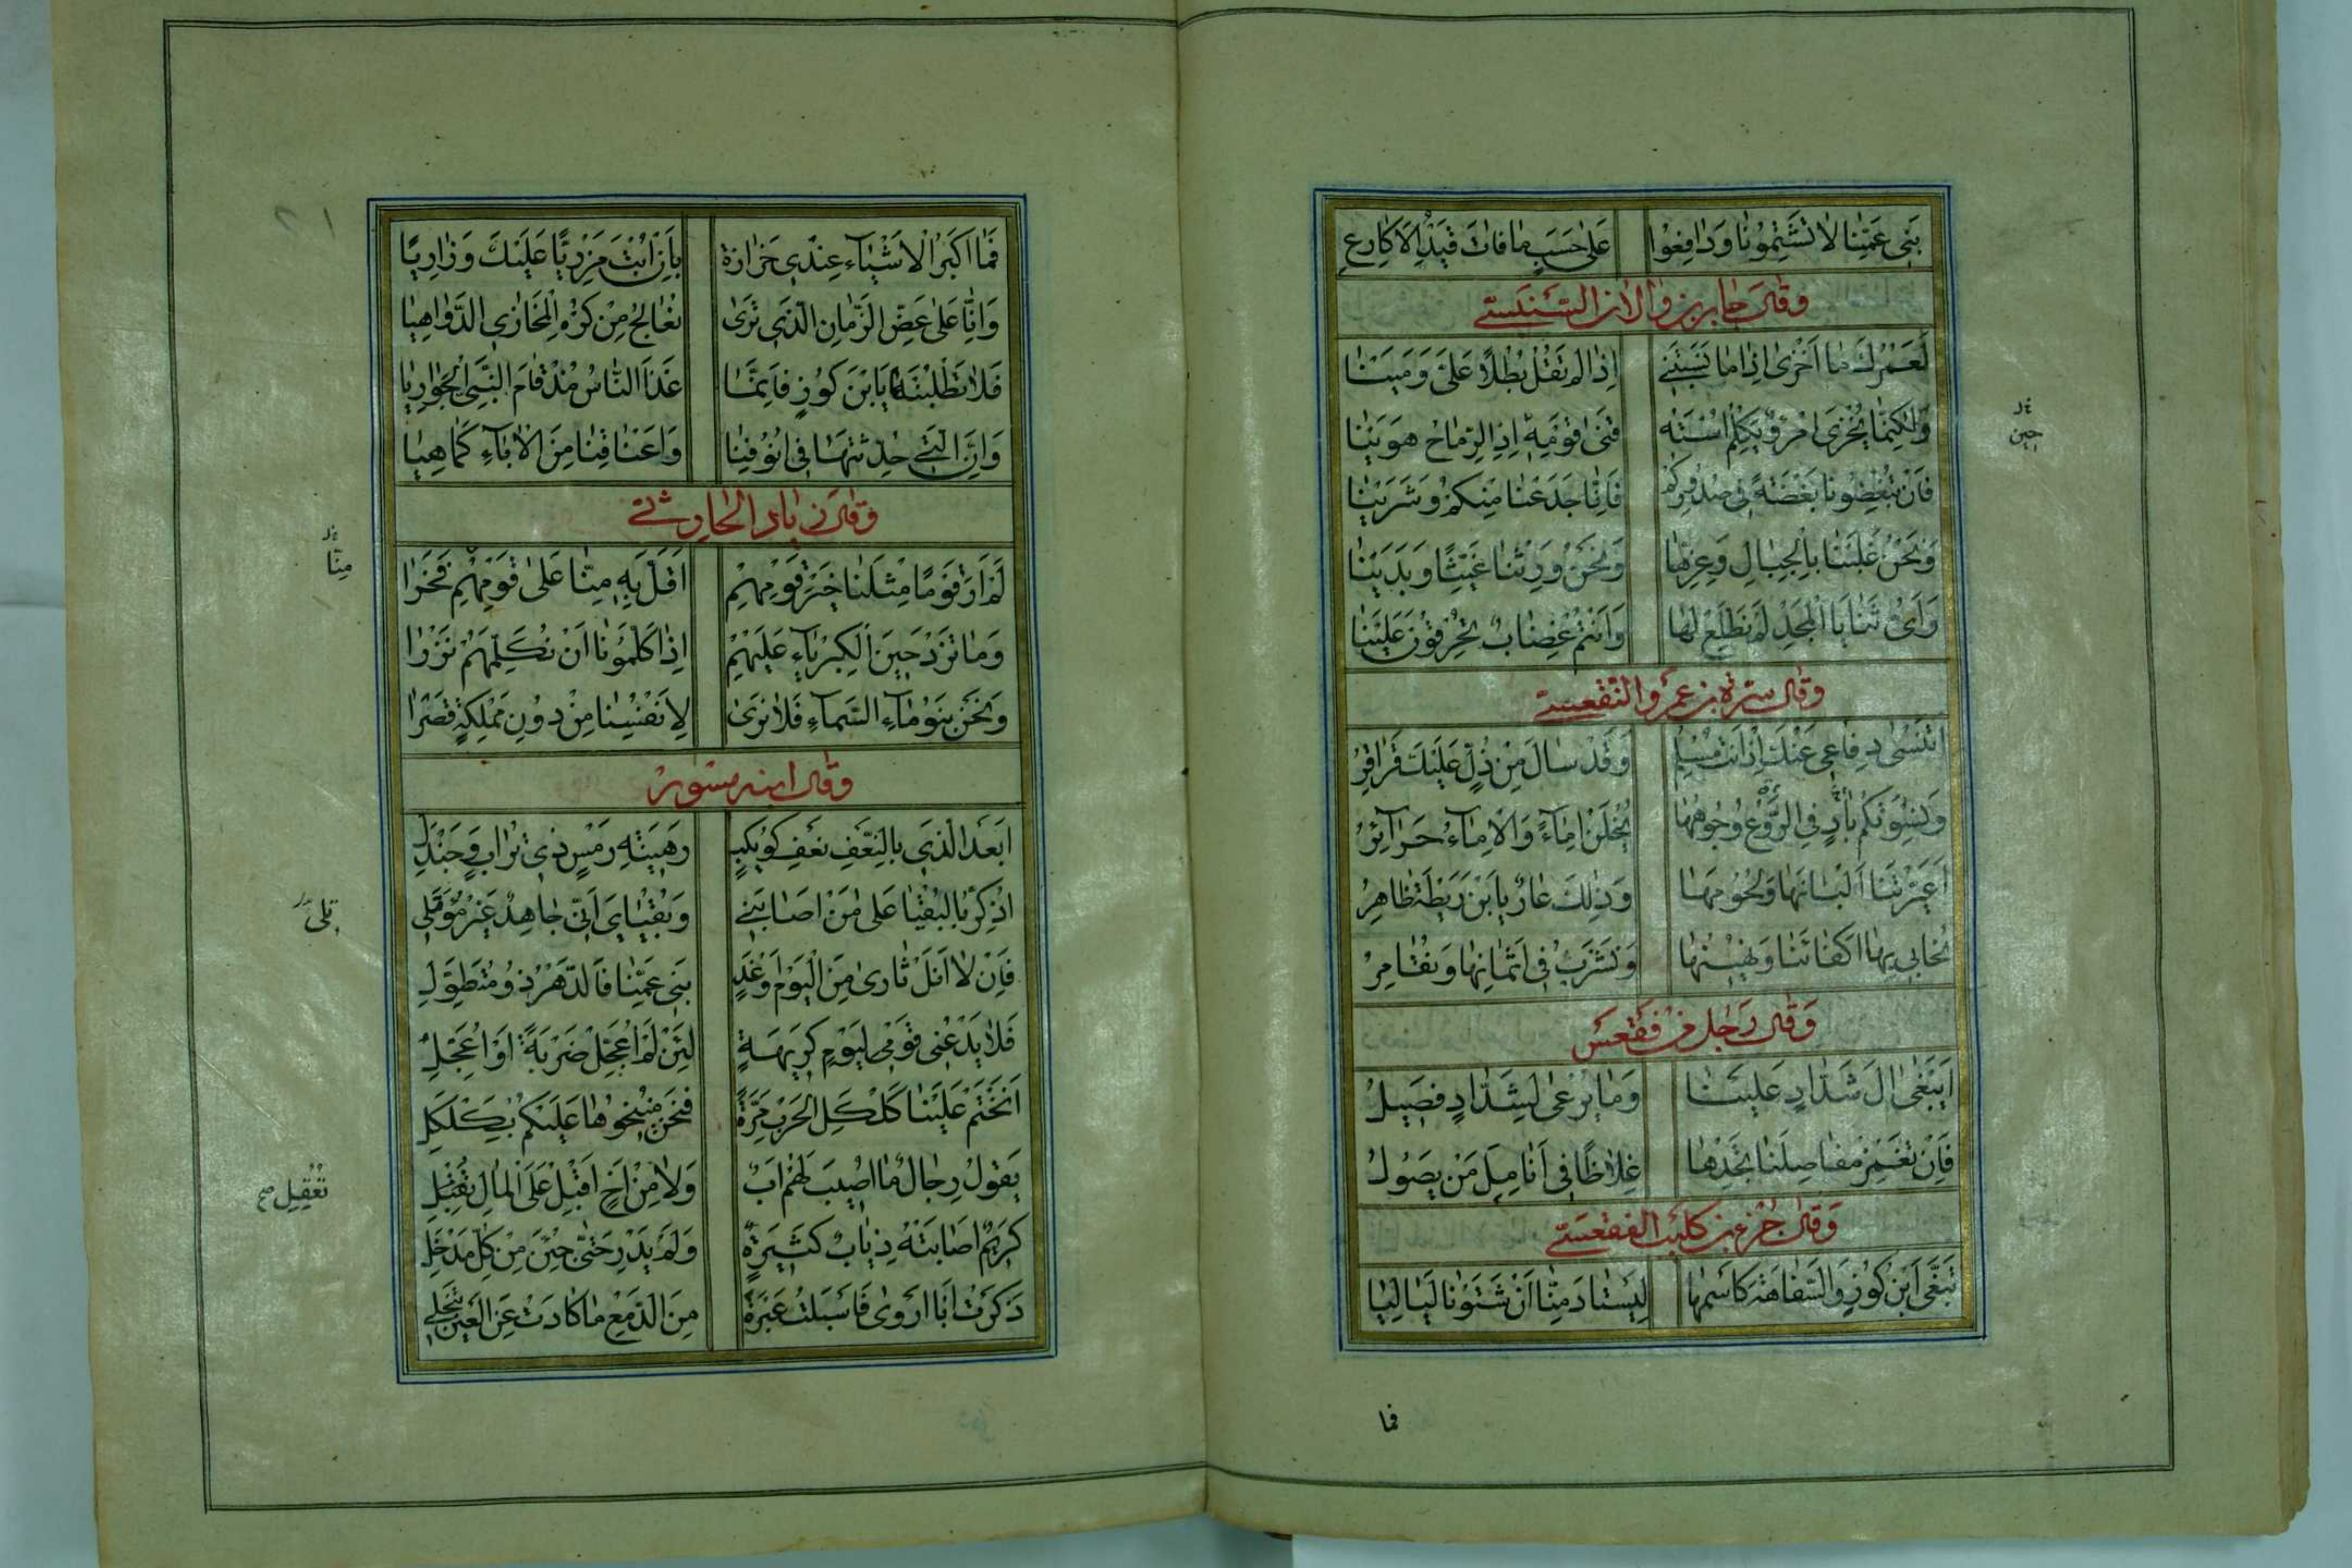 بَنِي عَمِّنَا لَا تَشْتِمُونَا وَدَافِعُوا عَلَى حَسَبٍ مَا فَاتَ قَيْدَ الْأَكَارِعِ
وقال جابر بن والان السنبسي
لَعَمْرُكَ مَا أَخْزَى إِذَا مَا نَسَبْتَنِي إِذَا لَمْ تَقُلْ بُطْلًا عَلَيَّ وَمَيْنَا
وَلَكِنَّمَا يُخْزَى امْرُؤٌ يَكْلِمُ اسْتَهُ قَنَى قَوْمِهِ إِذِ الرِّمَاحُ هَوَيْنَا
حين
فَإِنْ تُبْغِضُونَا بَغْضَةً فِي صُدُورِكُمْ فَإِنَّا جَدَعْنَا مِنْكُمْ وَشَرَيْنَا
وَنَحْنُ غَلَبْنَا بِالْجِبَالِ وَعِزِّهَا وَنَحْنُ وَرِثْنَا غَيِّثًا وَبَدَيْنَا
وَأَيُّ ثَنَايَا الْمَجْدِ لَمْ نَطَّلِعْ لَهَا وَأَنْتُمْ غِضَابٌ تَحْرُقُونَ عَلَيْنَا
وقال سبرة بن عمرو الفقعسي
أَتَنْسَى دِفَاعِي عَنْكَ إِذْ أَنْتَ مُسْلَمٌ وَقَدْ سَالَ مِنْ ذُلٍّ عَلَيْكَ قَرَاقِرُ
وَنِسْوَتُكُمْ بَادٍ فِي الرَّوْعِ وُجُوهُهَا يُخَلْنَ إِمَاءً وَالْإِمَاءُ حَرَائِرُ
أَعَيَّرْتَنَا أَلْبَانَهَا وَلُحُومَهَا وَذَلِكَ عَارٌ يَا بْنَ رَيْطَةَ ظَاهِرُ
نُحَابِي بِهَا أَكْفَاءَنَا وَنُهِينُهَا وَنَشْرَبُ فِي أَثْمَانِهَا وَنُقَامِرُ
وقال رجل من فقعس
أَيَبْغِي آلَ شَدَّادٍ عَلَيْنَا وَمَا يُرْغَى لِشَدَّادٍ فَصِيلُ
فَإِنْ تَغْمِزْ مَفَاصِلَنَا تَجِدْهَا غِلَاظًا فِي أَنَامِلِ مَنْ يَصُولُ
وقال جزء بن كليب الفقعسي
تَبَغَّى ابْنُ كُوزٍ وَالسَّفَاهَةُ كَاسْمِهَا لِيَسْتَادَ مِنَّا أَنْ شَتَوْنَا لَيَالِيَا
فما
فَمَا أَكْبَرُ الْأَشْيَاءِ عِنْدِي حَزَازَةً بِأَنْ أُبْتَ مَزْرِيًّا عَلَيْكَ وَزَارِيَا
وَإِنَّا عَلَى عَضِّ الزَّمَانِ الَّذِي تَرَى نُعَالِجُ مِنْ كُرْهِ الْمَخَازِي الدَّوَاهِيَا
فَلَا تَطْلُبَنَّهَا يَا بْنَ كُوزٍ فَإِنَّمَا غَذَا النَّاسُ مُذْ قَامَ النَّبِيُّ الْجَوَارِيَا
وَإِنَّ الَّتِي حُدِّثْتَهَا فِي أُنُوفِنَا وَأَعْنَاقِنَا مِنَ الْإِبَاءِ كَمَا هِيَا
وقال زيادة الحارثي
لَمْ أَرَ قَوْمًا مِثْلَنَا خَيْرَ قَوْمِهِمْ أَقَلَّ بِهِ مِنَّا عَلَى قَوْمِهِمْ فَخْرَا
مِنَّا
وَمَا تَزْدَهِينَا الْكِبْرِيَاءُ عَلَيْهِمْ إِذَا كَلَّمُونَا أَنْ نُكَلِّمَهُمْ نَزْرَا
وَنَحْنُ بَنُو مَاءِ السَّمَاءِ فَلَا نَرَى لِأَنْفُسِنَا مِنْ دُونِ مَمْلَكَةٍ قَصْرَا
وقال ابنه مسور
أَبَعْدَ الَّذِي بِالنَّعْفِ نَعْفِ كُوَيْكِبٍ رَهِينَةِ رَمْسٍ ذِي تُرَابٍ وَجَنْدَلِ
أُذَكَّرُ بِالْبُقْيَا عَلَى مَنْ أَصَابَنِي وَبُقْيَايَ أَنِّي جَاهِدٌ غَيْرُ مُؤْتَلِي
فَإِنْ لَا أَنَلْ ثَارِي مِنَ الْيَوْمِ أَوْ غَدٍ بَنِي عَمِّنَا فَالدَّهْرُ ذُو مُتَطَوَّلِ
فَلَا يَدْعُنِي قَوْمِي لِيَوْمِ كَرِيهَةٍ لَئِنْ لَمْ أُعَجِّلْ ضَرْبَةً أَوْ أُعَجَّلِ
أَنَخْتُمْ عَلَيْنَا كَلْكَلَ الْحَرْبِ مَرَّةً فَنَحْنُ مُنِيخُوهَا عَلَيْكُمْ بِكَلْكَلِ
يَقُولُ رِجَالٌ مَا أُصِيبَ لَهُمْ أَبٌ وَلَا مِنْ أَخٍ أَقْبِلْ عَلَى الْمَالِ تُقْبَلِ
تُعْقَلِ صح
كَرِيمٌ أَصَابَتْهُ ذِيَابٌ كَثِيرَةٌ وَلَمْ يَدْرِ حَتَّى جِئْنَ مِنْ كُلِّ مَدْخَلِ
ذَكَرْتُ أَبَا أَرْوَى فَأَسْبَلْتُ عَبْرَةً مِنَ الدَّمْعِ مَا كَادَتْ عَنِ الْعَيْنِ تَنْجَلِي